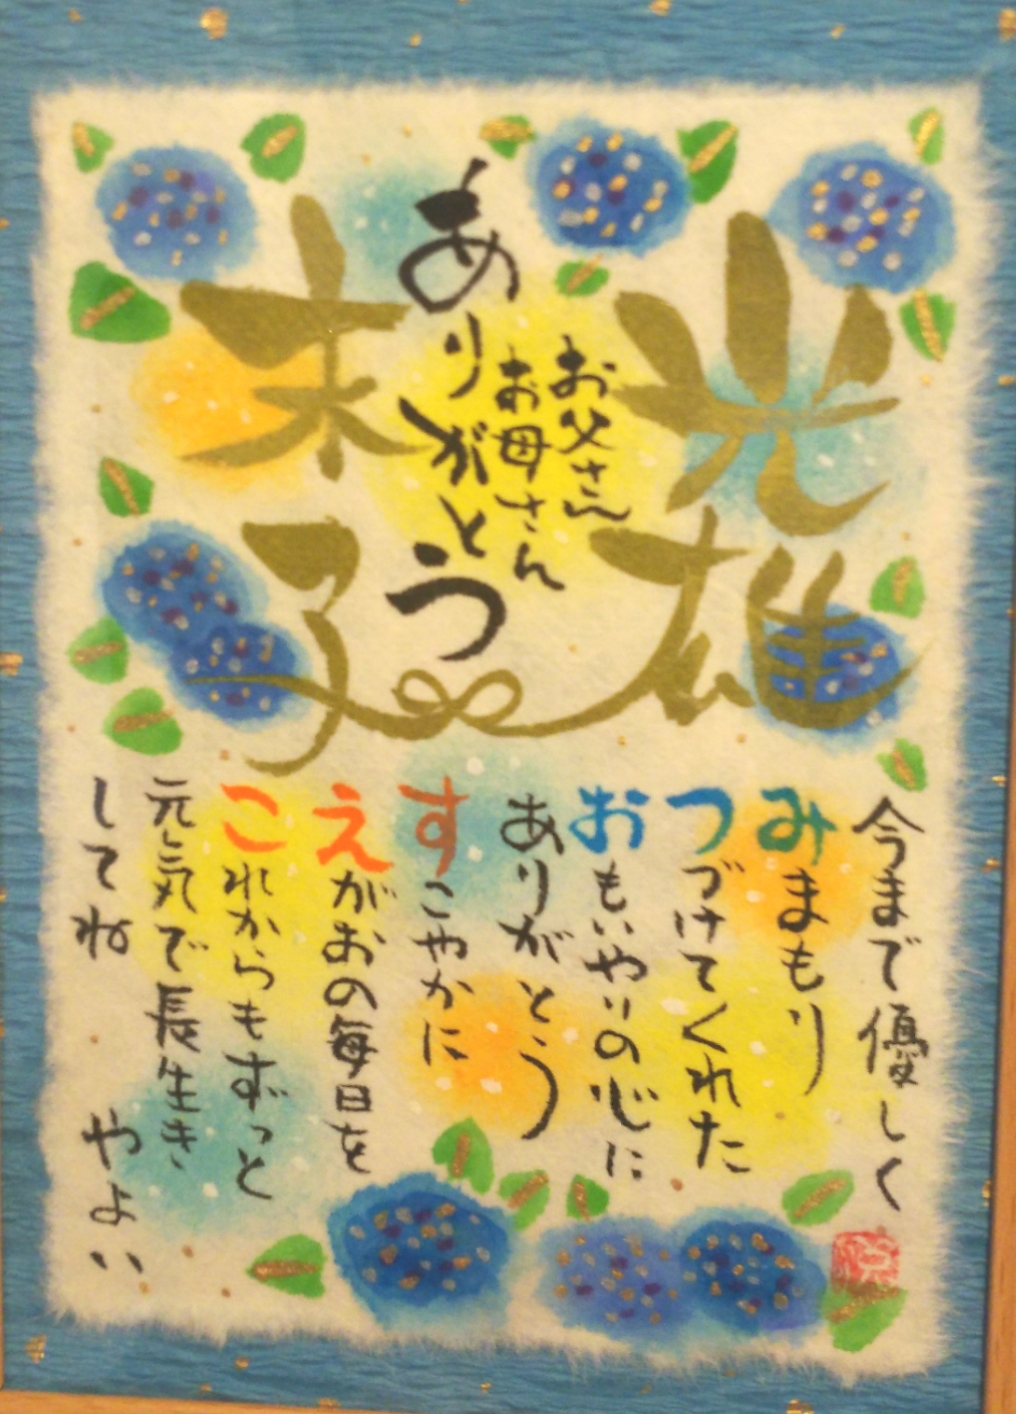 光雄
お父さん
お母さん
ありがとう
末子
今まで優しく
みまもり
つづけてくれた
おもいやりの心に
ありがとう
すこやかに
えがおの毎日を
これからもずっと
元気で長生き
してね やよい